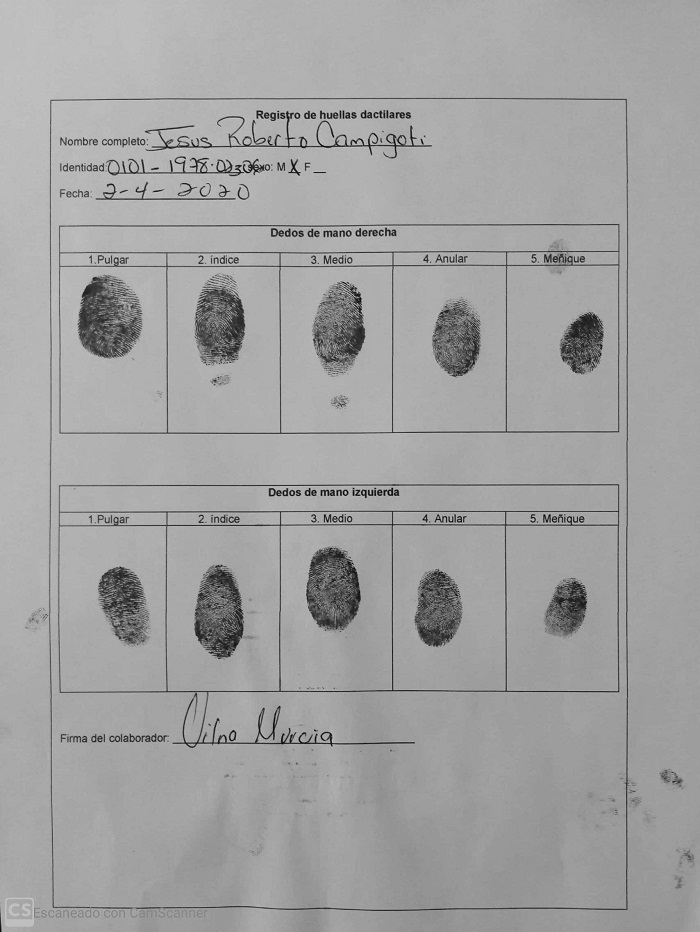 Registro de huellas dactilares
Nombre completo: Jesus Roberto Campigoti
Identidad: 0101-1978- Sexo: M X F _
Fecha: 2-4-2020
Dedos de mano derecha
1.Pulgar 2. índice 3. Medio 4. Anular 5. Meñique
Dedos de mano izquierda
1.Pulgar 2. índice 3. Medio 4. Anular 5. Meñique
Firma del colaborador: Murcia
CS Escaneado con CamScanner